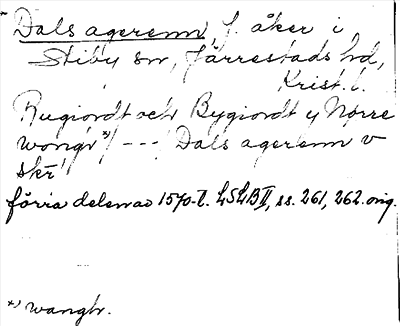 Dals agerenn, f. åker i
Stiby sn, Järrestads hd,
Krist. l.
Rugiordt och Bygiordt y Nørre
wongr*) --- Dals agerenn v
skr
förra delen av 1570-t. LSLB II, ss. 261, 262. orig.
*) wanghr.